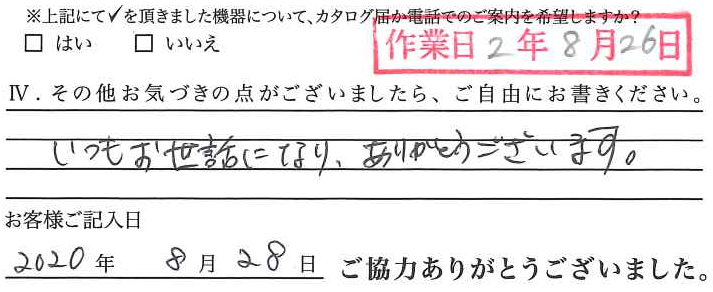 ※上記にて✓を頂きました機器について、カタログ届か電話でのご案内を希望しますか？
□ はい　□ いいえ
作業日 2年 8月26日
Ⅳ．その他お気づきの点がございましたら、ご自由にお書きください。
いつもお世話になり、ありがとうございます。
お客様ご記入日
2020年　8月28日　ご協力ありがとうございました。